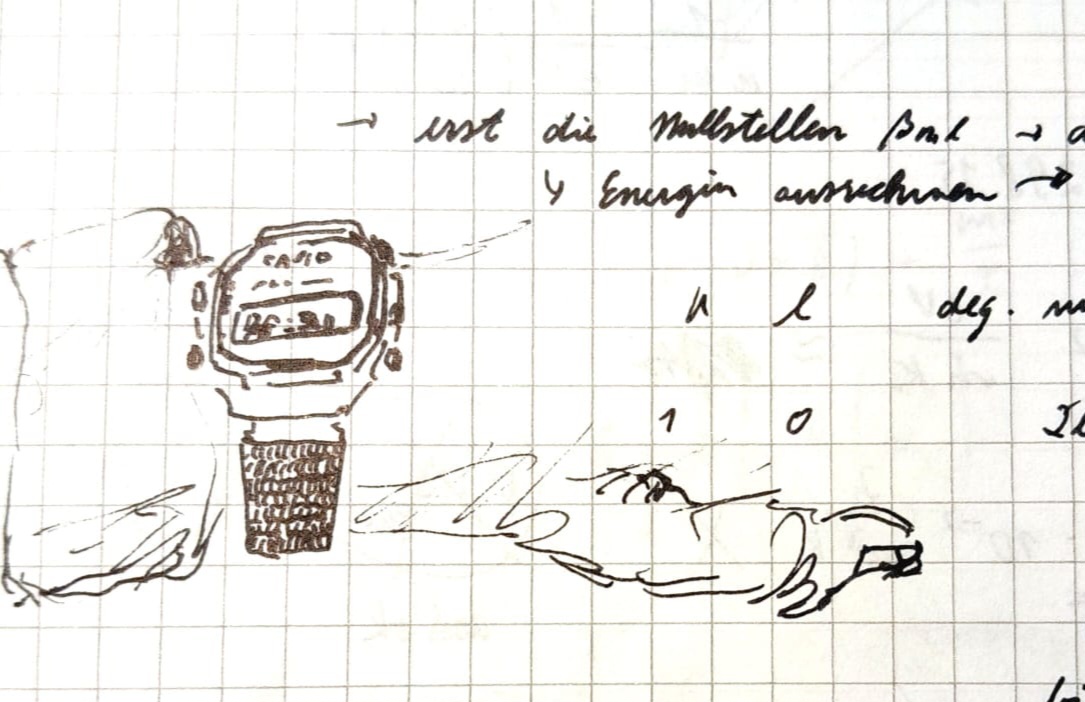 → erst die Nullstellen βnl →
↳ Energien ausrechnen →
CASIO
n l deg.
1 0